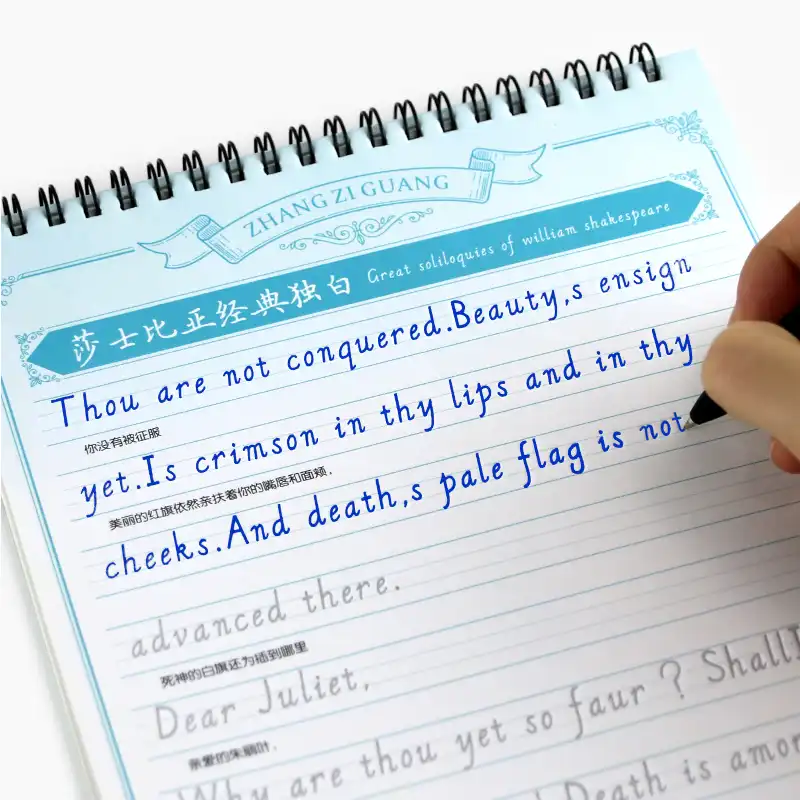 ZHANG ZI GUANG
莎士比亚经典独白 Great soliloquies of william shakespeare
Thou are not conquered.Beauty,s ensign
你没有被征服
yet.Is crimson in thy lips and in thy
美丽的红旗依然亲扶着你的嘴唇和面颊.
cheeks.And death,s pale flag is not
advanced there.
死神的白旗还为插到哪里
Dear Juliet,
亲爱的朱丽叶.
Why are thou yet so faur ? ShallI
Death is amor